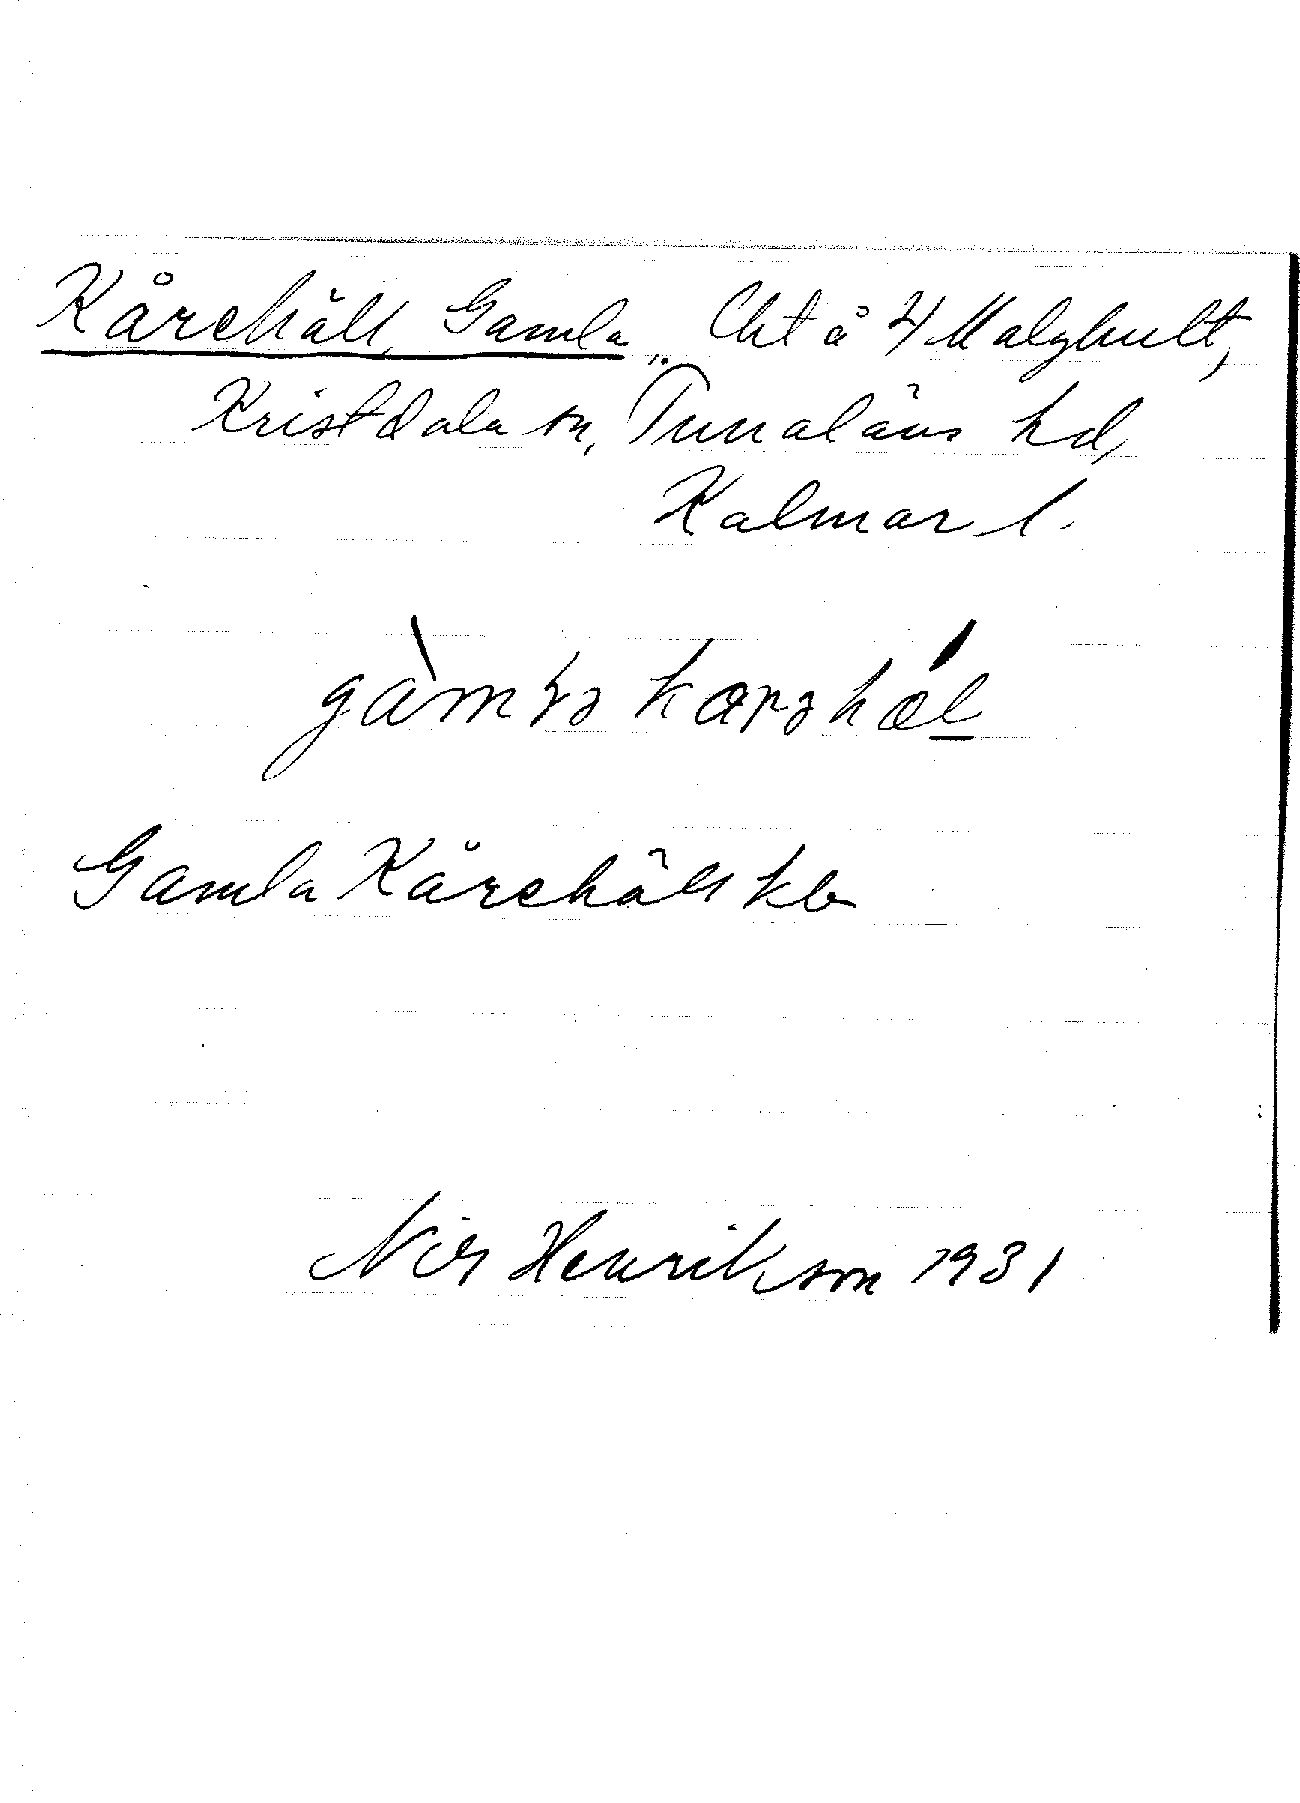 Kårehäll, Gamla, Cht å 4 Malghult,
Kristdala sn, Tunaläns hd,
Kalmar l.
gàmɫə kɑrəhǽl
Gamla Kårehäll kb
Nils Henrikson 1931